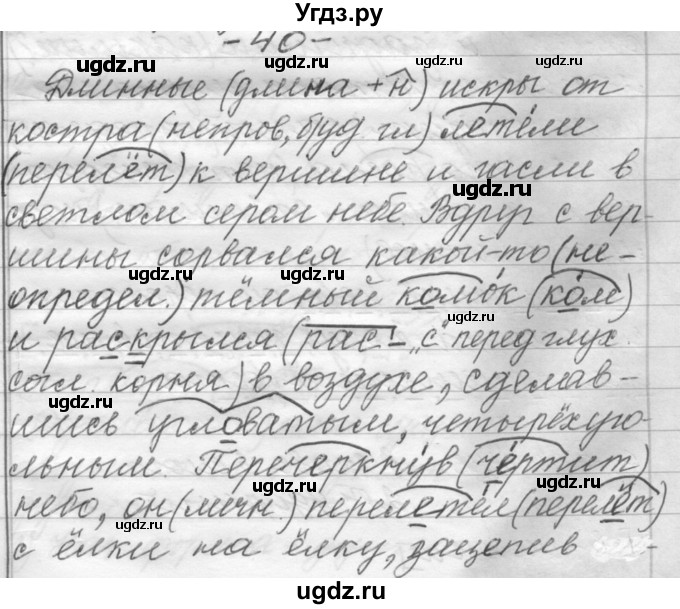 Угдз.ру
-40-
Длинные (длина + н) искры от
костра (непров, буд гл) летели
(перелёт) к вершине и гасли в
светлом сером небе. Вдруг с вер-
шины сорвался какой-то (не-
определ.) тёмный комок (ком)
и раскрылся (рас- - „с" перед глух.
согл. корня) в воздухе, сделав-
шись угловатым, четырёхуго-
льным. Перечеркнув (чертит)
небо, он (личн.) перелетел (перелёт)
с ёлки на ёлку, зацепив -
ugdz.ru
ugdz.ru
ugdz.ru
ugdz.ru
ugdz.ru
ugdz.ru
ugdz.ru
ugdz.ru
ugdz.ru
ugdz.ru
ugdz.ru
ugdz.ru
ugdz.ru
ugdz.ru